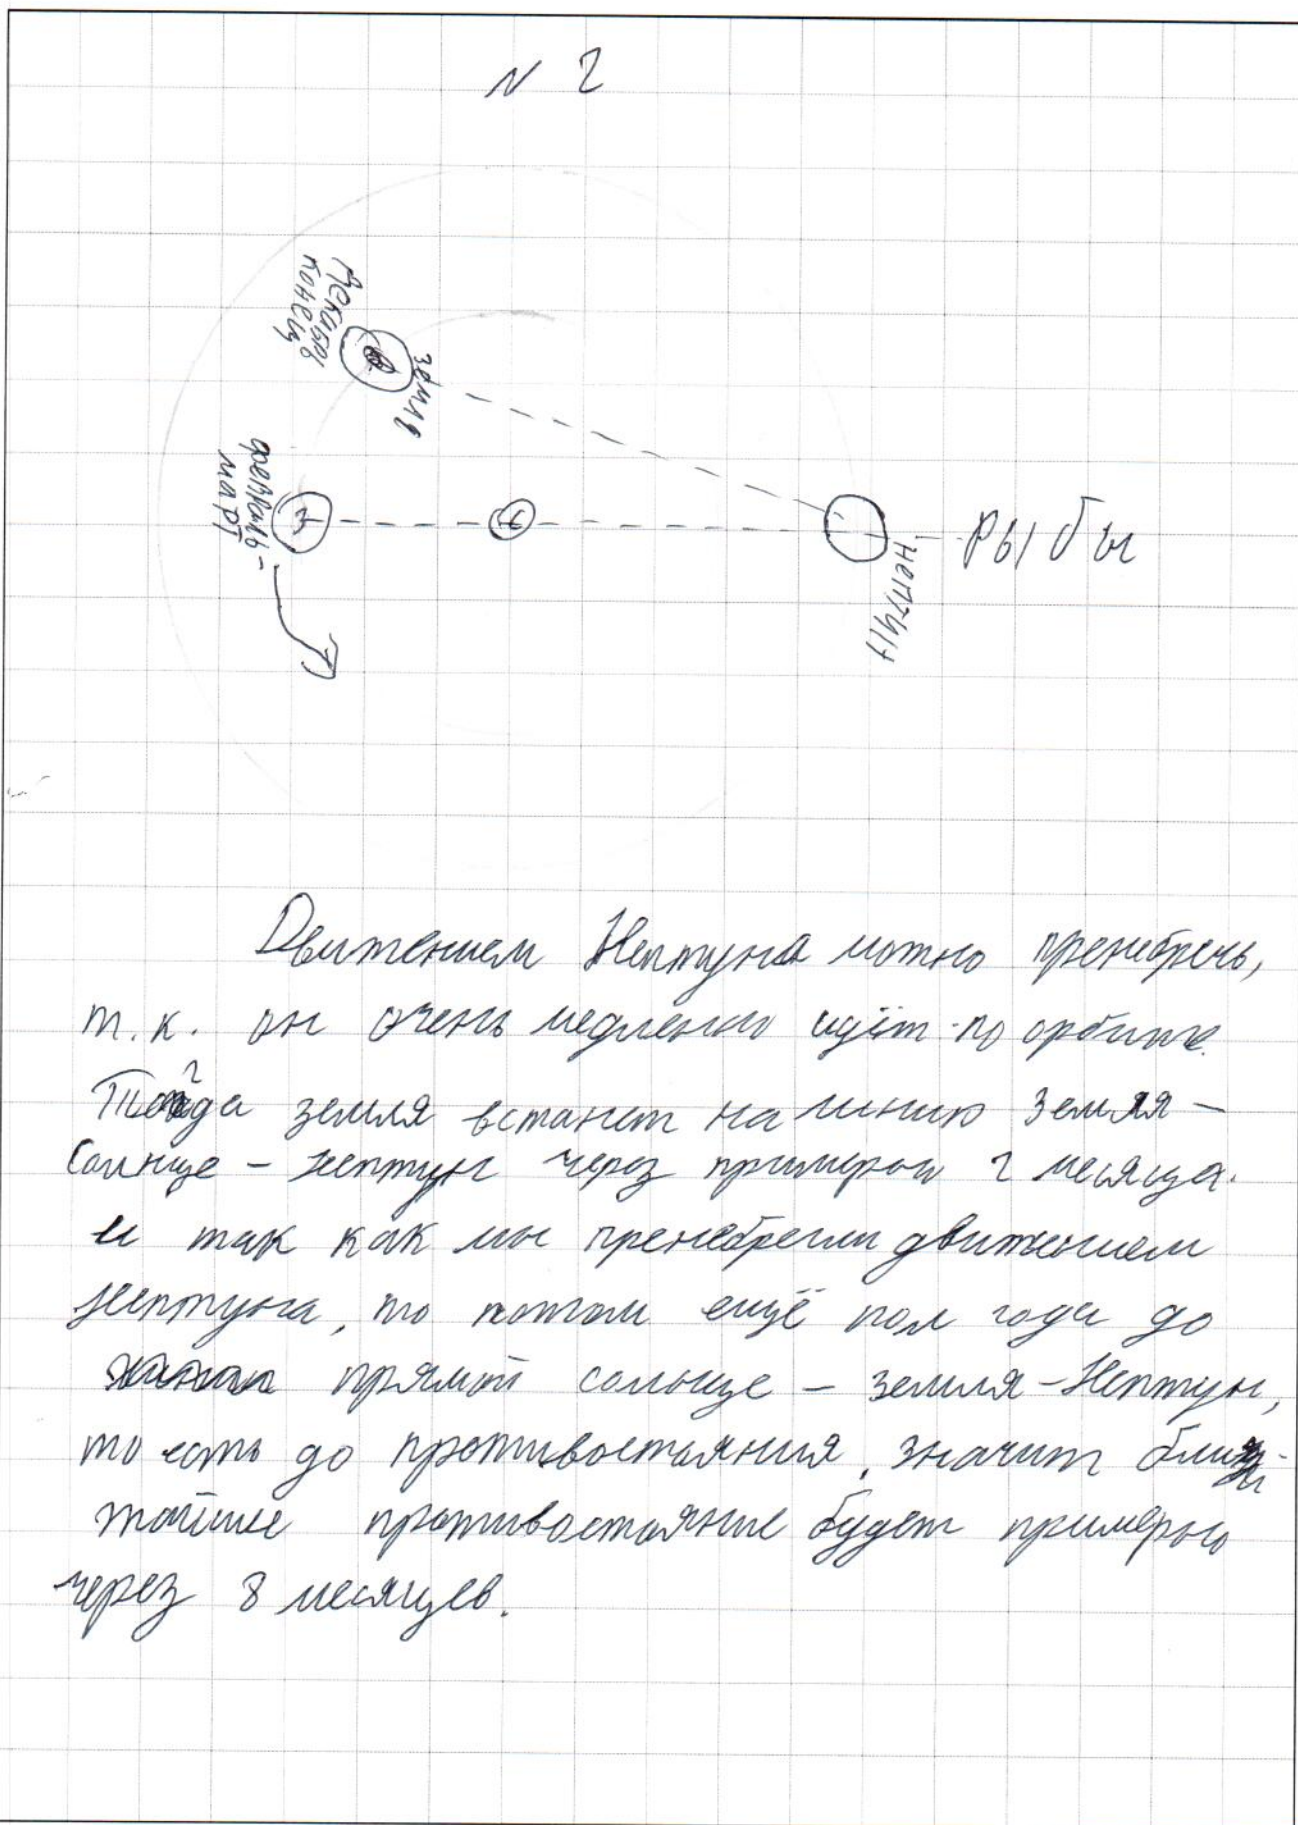 N 2
декабрь
конец
земля
февраль -
март
Нептун
Рыбы
Движением Нептуна можно пренебречь,
т.к. он очень медленно идёт по орбите.
Тогда земля встанет на линию Земля –
Солнце – Нептун через примерно 2 месяца.
и так как мы пренебрегли движением
Нептуна, то потом ещё пол года до
прямой солнце – земля – Нептун,
то есть до противостояния, значит ближ-
жайшее противостояние будет примерно
через 8 месяцев.